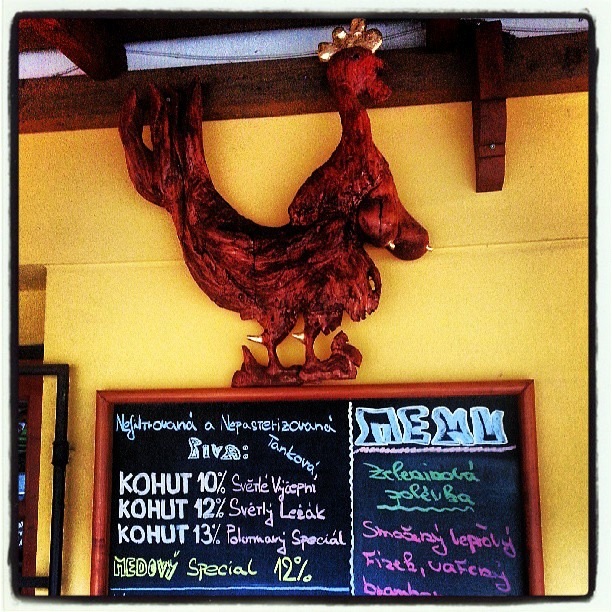 Nefiltrovaná a Nepasterizovaná
Tanková,
Piva:
KOHUT 10% Světlé Výčepní
KOHUT 12% Světlý Ležák
KOHUT 13% Polotmavý Speciál
MEDOVÝ Special 12%
MENU
Zeleninová
polévka
Smažený vepřový
Řízek, vařený